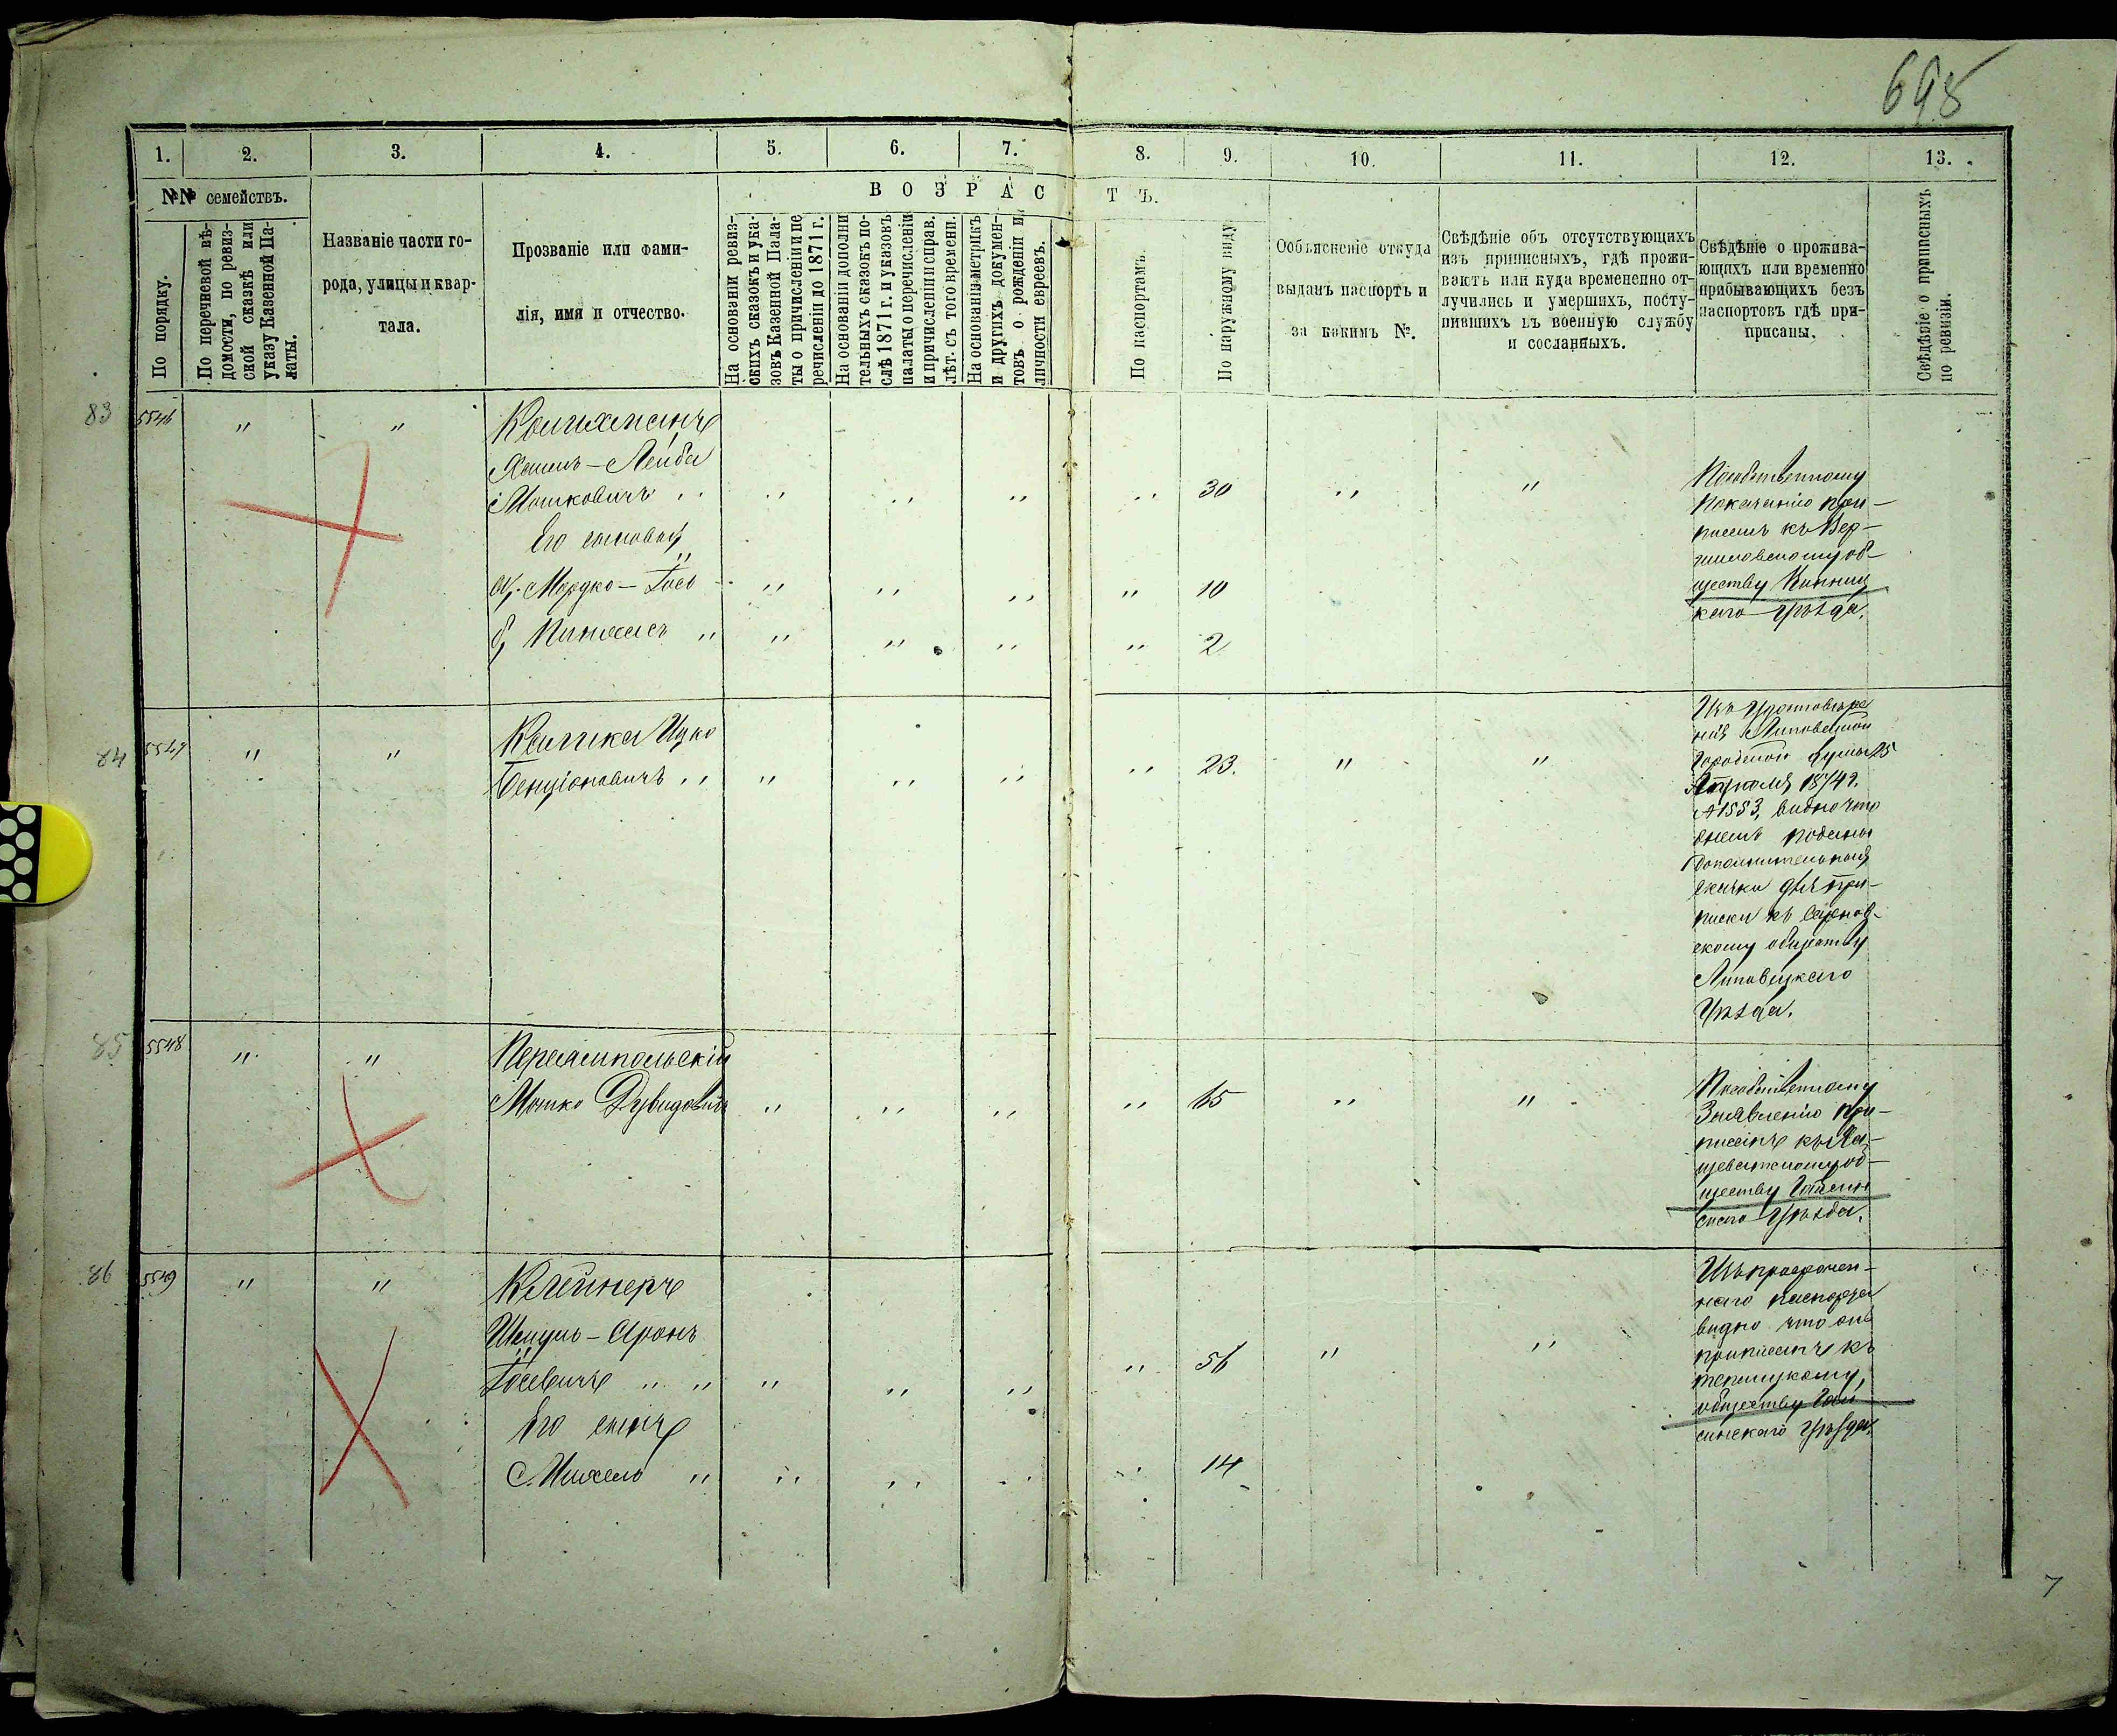 695
1. 2. 3. 4. 5. 6. 7. 8. 9. 10. 11. 12. 13.
№№ семействъ.
В О З Р А С Т Ъ.
По порядку.
По перечневой вѣ-
домости, по ревиз-
ской сказкѣ или
указу Казенной Па-
латы.
Названіе части го-
рода, улицы и квар-
тала.
Прозваніе или фами-
лія, имя и отчество.
На основаніи ревиз-
скихъ сказокъ и ука-
зовъ Казенной Пала-
ты о причисленіи и пе
речисленіи до 1871 г.
На основаніи дополни
тельныхъ сказокъ по-
слѣ 1871 г. и указовъ
палаты о перечисленіи
и причисленіи и справ.
лѣт. съ того времени.
На основаніи метрикъ
и другихъ докумен-
товъ о рожденіи и
личности евреевъ.
По паспортамъ.
По наружному виду
Ообъясненіе откуда
выданъ паспортъ и
за какимъ №.
Свѣдѣніе объ отсутствующихъ
изъ приписныхъ, гдѣ прожи-
ваютъ или куда времененно от-
лучились и умершихъ, посту-
пившихъ въ военную службу
и сосланныхъ.
Свѣдѣніе о прожива-
ющихъ или временно
прибывающихъ безъ
паспортовъ гдѣ при-
приписаны.
Свѣдѣніе о приписныхъ
по ревизіи.
83 5546 " "
Хаимъ-Лейба
Мошковичъ " " " " " 30 " "
Его сыновья
а, Мордко-Іось " " " " 10
б, Пинхасъ " " " " " 2
Пособственному
показанію при-
писанъ къ
об-
ществу Винниц
каго Уѣзда.
84 5547 " "
Калика Ицко
Бенціоновичъ " " " " " 23. " "
Изъ Удостовѣре
нія Липовецкой
Городской Думы 25
Апрѣля 1874 г.
№ 1553, видно что
поданы
Дополнительная
сказка для при-
писки къ
скому обществу
Липовецкаго
Уѣзда.
85 5548 " "
Мошко Дувидовичъ " " " " 65 " "
Пособственному
Заявленію при-
писанъ къ
об-
ществу Гайсин
скаго Уѣзда.
86 5549 " "
Клейнеръ
Шмуль-Аронъ
Іосевичъ " " " " " " 56 " "
Его сынъ
Михель " " " " " 14
Изъ просрочен-
наго паспорта
видно что онъ
приписанъ къ
обществу Гай
синскаго Уѣзда.
7